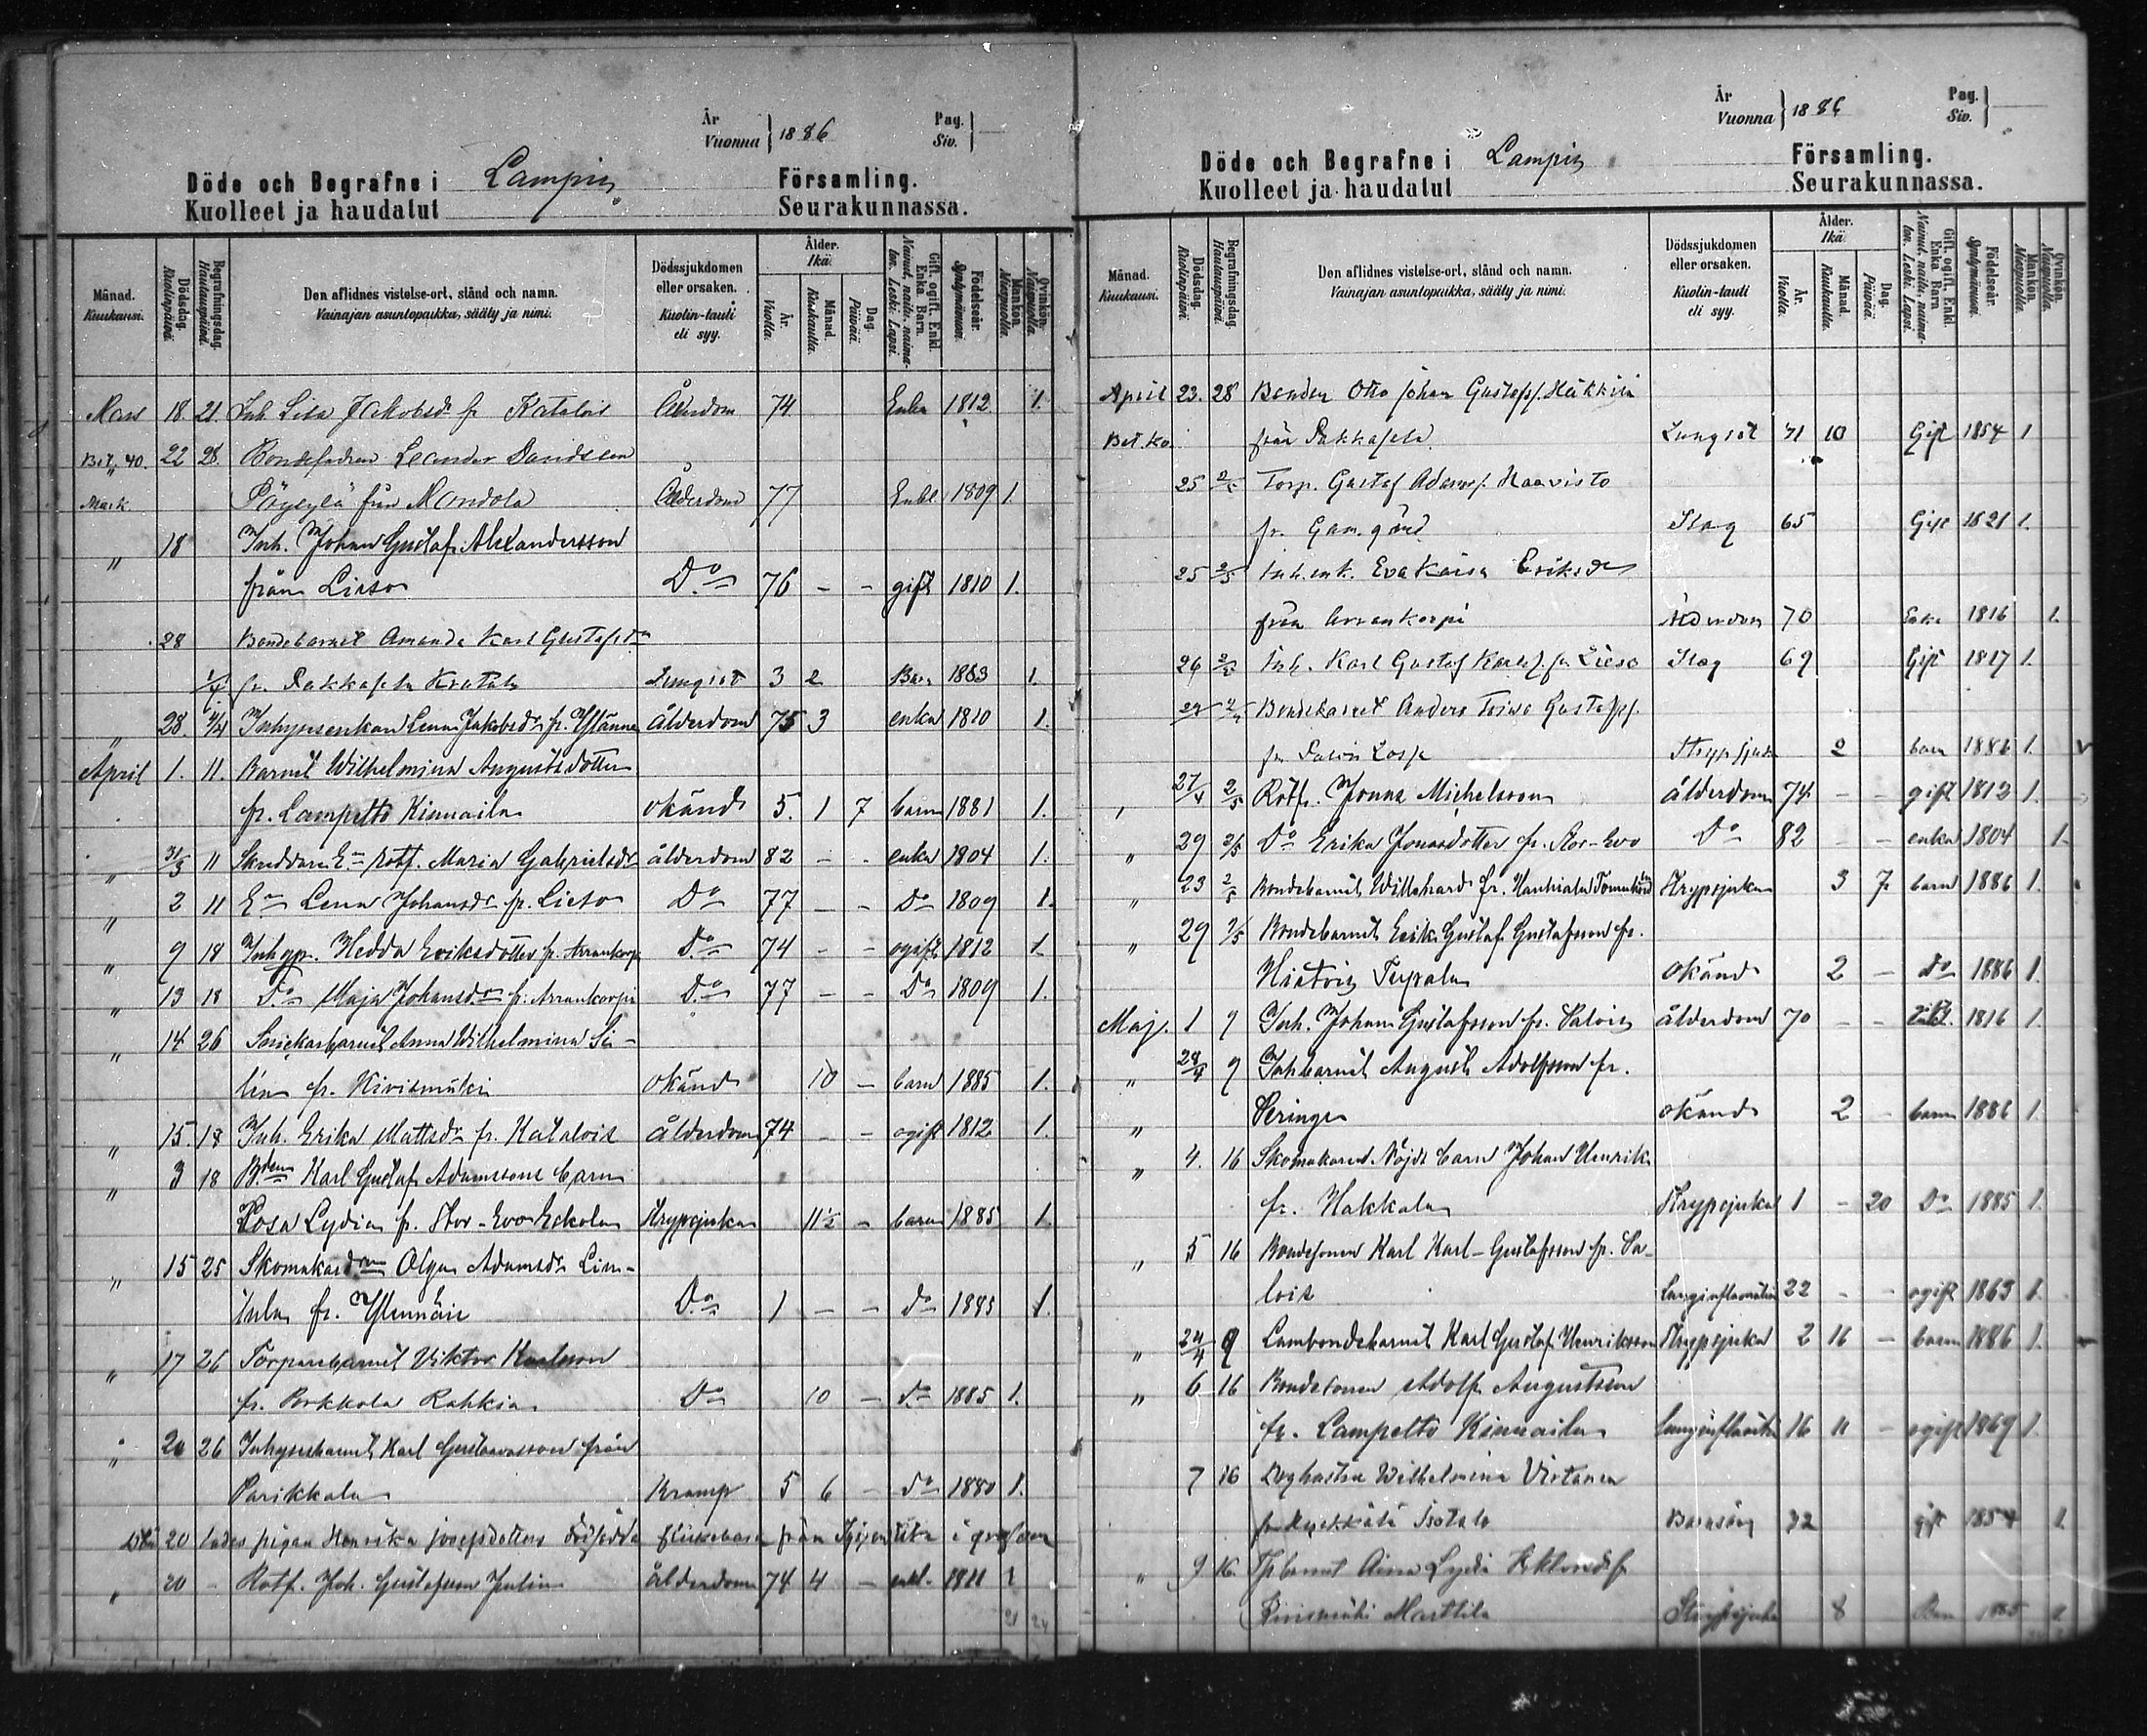 År
Vuonna } 1886
Pag.
Siv. }
Döde och Begrafne i Lampis Församling.
Kuolleet ja haudatut Seurakunnassa.
Månad. Kuukausi.
Dödsdag. Kuolinpäivä.
Begrafningsdag. Hautauspäivä.
Den aflidnes vistelse-ort, stånd och namn.
Vainajan asuntopaikka, sääty ja nimi.
Dödssjukdomen eller orsaken.
Kuolin-tauti eli syy.
Ålder. Ikä.
År. Vuotta.
Månad. Kuukautta.
Dag. Päivää.
Gift, ogift, Enkl. Enka Barn.
Nainut, naitu, naimaton. Leski. Lapsi.
Födelseår. Syntymävuosi.
Mankön. Miespuolia.
Qvinkön. Naispuolia.
Mars 18. 21. Inh. Lisa Jakobsdr fr Katalois Ålderdom 74 Enka 1812 1.
Bet. 40. 22 28. Bondefadren Leander Davidsson
Mark. från Mondola Ålderdom 77 Enkl. 1809 1.
" 18 Inh. Johan Gustaf Alexandersson
från Lieso Do 76 - - gift 1810 1.
28 Bondebarnet Amanda Karl Gustafsdr
1/4 fr. Pakkasela Kratula Lungsot 3 2 Barn 1883 1.
" 28. 4/4 Inhysesenkan Lena Jakobsdr fr. ålderdom 75 3 enka 1810 1.
April 1. 11. Barnet Wilhelmina Augustsdotter
fr. Lampelto Kinnaila okänd 5. 1 7 barn 1881 1.
" 31/3 11 Enk. rotf. Maria Gabrielsdr ålderdom 82 - - enka 1804 1.
" 2 11 En Lena Johansdr fr. Lieso Do 77 - - Do 1809 1.
" 9 18 Inhys. Hedda Eriksdotter fr. Arrankorpi Do 74 - - ogift 1812 1.
" 13 18 Do Maja Johansdr fr. Arrankorpi Do 77 - - Do 1809 1.
" 14 26 Snickarbarnet Anna Wilhelmina Si-
lén fr. Kivismäki okänd 10 - barn 1885 1.
" 15. 18 Inh. Erika Mattsdr fr. Katalois ålderdom 74 - - ogift 1812 1.
" 3 18 Karl Gustaf Adamssons barn
Rosa Lydia fr. Stor-Evo Eckola Strypsjuka 11½ - barn 1885 1.
" 15 25 Olga Adamsdr Lin-
fr. Do 1 - - do 1885 1.
" 17 26 Torparebarnet Viktor Karlsson
fr. Porkkola Rahkia Do 10 - do 1885 1.
" 20 26 Inhysesbarnet Karl Gustavsson från
Parikkala Kramp 5 6 - do 1880 1.
20 lades pigan Henrika Josefsdotters dödfödda flickebarn från i grafven
" 20 - Rotf. Joh. Gustafsson Julin ålderdom 74 4 - enkl. 1811 1
21 24
År
Vuonna } 1886
Pag.
Siv. }
Döde och Begrafne i Lampis Församling.
Kuolleet ja haudatut Seurakunnassa.
Månad. Kuukausi.
Dödsdag. Kuolinpäivä.
Begrafningsdag. Hautauspäivä.
Den aflidnes vistelse-ort, stånd och namn.
Vainajan asuntopaikka, sääty ja nimi.
Dödssjukdomen eller orsaken.
Kuolin-tauti eli syy.
Ålder. Ikä.
År. Vuotta.
Månad. Kuukautta.
Dag. Päivää.
Gift, ogift, Enkl. Enka Barn.
Nainut, naitu, naimaton. Leski. Lapsi.
Födelseår. Syntymävuosi.
Mankön. Miespuolia.
Qvinkön. Naispuolia.
April 23. 28 Bonden Otto Johan Gustafss. Häkkinä
från Pakkasela Lungsot 31 10 Gift 1854 1
25 2/5 Torp. Gustaf Adamss. Haavisto
fr. Gam.gård Slag 65 Gift 1821 1.
25 2/5 Inh.enk. Eva Kaisa Eriksdr
från Arrankorpi Ålderdom 70 Enka 1816 1.
26 2/5 Inh. Karl Gustaf Karlss. fr Lieso Slag 69 Gift 1817 1.
Bondebarnet Anders Toivo Gustafss.
Strypsjuka 2 barn 1886 1.
" 27/4 2/5 Rotf. Jonna Michelsson ålderdom 74 - - gift 1812 1.
" 29 2/5 Do Erika Jonasdotter fr. Stor-Evo Do 82 - - enka 1804 1.
" 23 2/5 Bondebarnet Willehard fr. Strypsjuka 3 7 barn 1886 1.
" 29 2/5 Bondebarnet Erik Gustaf Gustafsson fr.
okänd 2 - Do 1886 1.
Maj. 1 9 Inh. Johan Gustafsson fr. Salois ålderdom 70 - - enkl. 1816 1.
" 28/4 9 Inhbarnet August Adolfsson fr.
" okänd 2 - barn 1886 1.
" 4. 16 Skomakaren Nöjds barn Johan Henrik
fr. Hakkala Strypsjuka 1 - 20 Do 1885 1.
" 5 16 Bondesonen Karl Karl-Gustafsson fr. Sa-
lois Lunginflamation 22 - - ogift 1863 1.
" 24/4 9 Karl Gustaf Henriksson Strypsjuka 2 16 - barn 1886 1.
" 6 16 Bondesonen Adolf Augustsson
fr. Lampelto Kinnaila 16 11 - ogift 1869 1.
7 16 Wilhelmina Virtanen
Isotalo Barnsäng 32 gift 1854 1.
" 9 16. barnet Aina Lydia
Kivismäki Marttila Strypsjuka 8 Barn 1885 1.